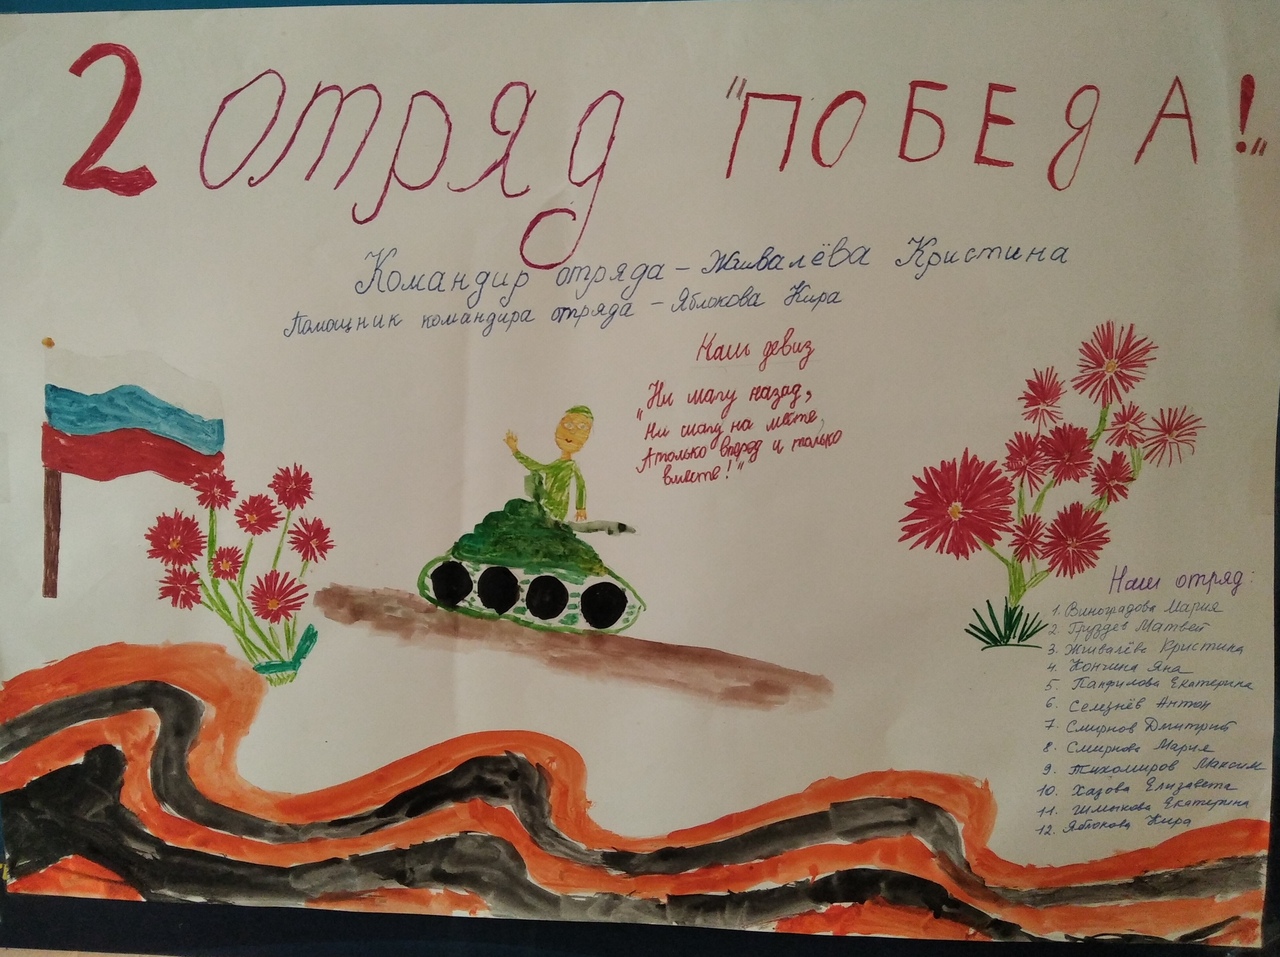 2 отряд "ПОБЕДА!"
Командир отряда - Живалёва Кристина
Помощник командира отряда - Яблокова Кира
Наш девиз
"Ни шагу назад,
Ни шагу на месте,
А только вперед и только
вместе!"
Наш отряд:
1. Виноградова Мария
2. Груздев Матвей
3. Живалёва Кристина
4. Кончина Яна
5. Панфилова Екатерина
6. Селезнёв Антон
7. Смирнов Дмитрий
8. Смирнова Мария
9. Тихомиров Максим
10. Хазова Елизавета
11. Шмыкова Екатерина
12. Яблокова Кира